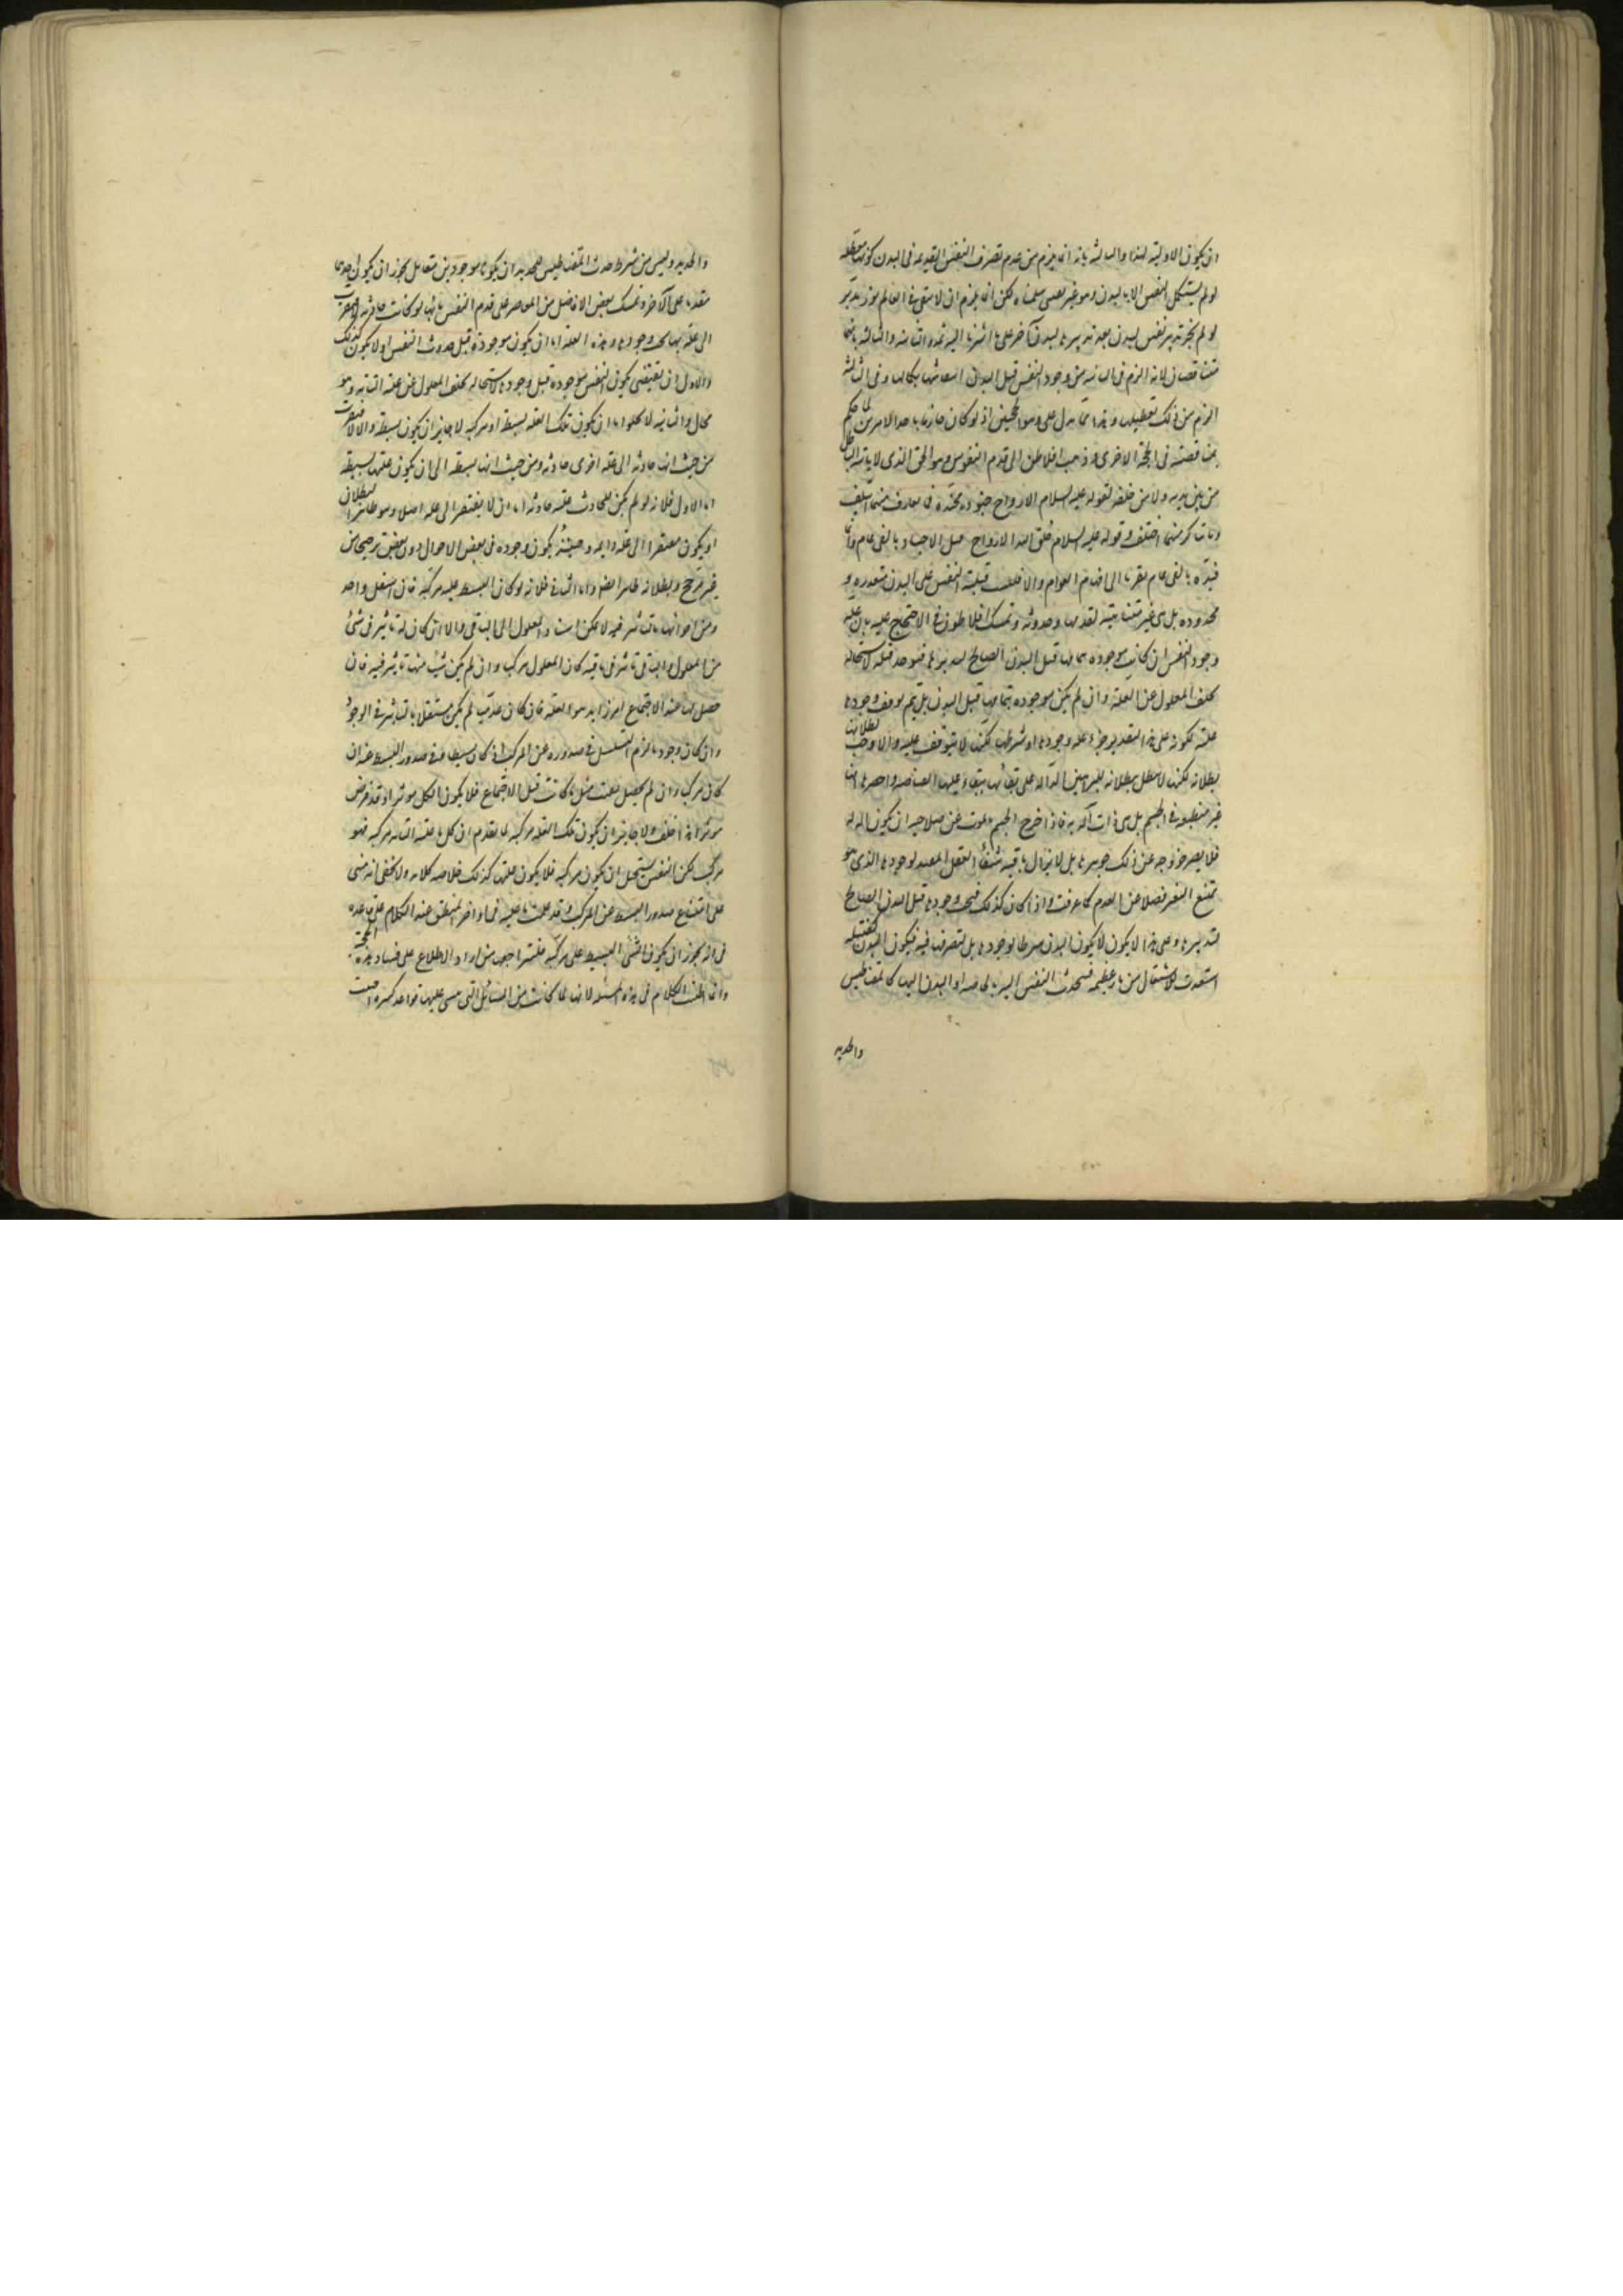 ان يكون الاولية لهذا والثالثة بانه انما يلزم من عدم تصرف النفس القديمة فى البدن كونها معطلة
لو لم يستكمل النفس الا بالبدن وهو غير بعض سلمناه لكن انما يلزم ان لا يبقى فى العالم نور مدبر
لو لم يجز تدبير نفس لبدن بعد تدبيرها لبدن آخر على ما اشرنا اليه ثم ان الثانية والثالثة بانهما
متناقضان لانه الزم فى الثانية من وجود النفس قبل البدن انتعاشها بكمالها وفى الثالثة
الزم من ذلك تعطيلها وهذا مما يدل على وهن الحجتين اذ لو كان جازما باحد الامرين لما حكم
بمناقضته فى الحجة الاخرى وذهب افلاطن الى قدم النفوس وهو الحق الذى لا ياتيه الباطل
من بين يديه ولا من خلفه لقوله عليه السلام الارواح جنود مجندة فما تعارف منها ائتلف
وما تناكر منها اختلف وقوله عليه السلام خلق الله الارواح قبل الاجساد بالفى عام وانما
قيده بالفى عام تقريبا الى افهام العوام والا فليست قبلية النفس على البدن متقدرة و
محدودة بل هى غير متناهية لقدمها وحدوثه وتمسك افلاطون فى الاحتجاج عليه بان علة
وجود النفس ان كانت موجودة بتمامها قبل البدن الصالح لتدبيرها فتوجد قبله لاستحالة
تخلف المعلول عن العلة وان لم يكن موجودة بتمامها قبل البدن بل يتم به توقف وجودها
عليه لكونه على هذا التقدير جزء علة وجودها او شرطها لكنها لا تتوقف عليه والا وجب بطلانها
ببطلانه لكنها لا تبطل ببطلانه للبراهين الدالة على بقائها ببقاء علتها الفياضة واحدها انها
غير منطبعة فى الجسم بل هى ذات آلة به فاذا خرج الجسم بالموت عن صلاحية ان يكون آلة له
فلا يضر خروجه عن ذلك جوهرها بل لا يزال باقية بقاء العقل المفيد لوجودها الذى هو
ممتنع التغير فضلا عن العدم كما عرفت واذا كان كذلك فيجب وجودها قبل البدن الصالح
لتدبيرها وعلى هذا لا يكون البدن شرطا لوجودها بل لتصرفها فيه فيكون البدن كفتيلة
استعدت للاشتعال من نار عظيمة فتجذب النفس اليه بالخاصة او البدن اليها كالمغناطيس
والحديد
والحديد وليس من شرط جذب المغناطيس للحديد ان يكونا موجودين معا بل يجوز ان يكون احدهما
متقدما على الآخر وتمسك بعض الافاضل من المعاصر على قدم النفس بانها لو كانت حادثة لافتقرت
الى علة بها يجب وجودها وهذه العلة اما ان يكون موجودة قبل حدوث النفس او لا يكون كذلك
والاول ان يقتضى كون النفس موجودة قبل وجودها لاستحالة تخلف المعلول عن علته التامة وهو
محال والثانية لا يخلوا اما ان يكون تلك العلة بسيطة او مركبة لا جايز ان يكون بسيطة والا لافتقرت
من حيث انها حادثة الى علة اخرى حادثة ومن حيث انها بسيطة الى ان يكون علتها بسيطة
اما الاول فلانه لو لم يكن للحادث علة حادثة اما ان لا يفتقر الى علة اصلا وهو ظاهر البطلان
او يكون مفتقرا الى علة دائمة وحينئذ يكون وجوده فى بعض الاحوال دون بعض ترجيحا من
غير مرجح وبطلانه ظاهر ايضا واما الثانى فلانه لو كان البسيط علته مركبة فان استقل واحد
ومن اجزائها بالتاثير فيه لا يمكن استناد المعلول الى الباقى والا ان كان له تاثير فى شئ
من المعلول والباقى تاثير فى باقيه كان المعلول مركبا وان لم يكن لشئ منها تاثير فيه فان
حصل لها عند الاجتماع امر زايد هو العلة فان كان عدميا لم يكن مستقلا بالتاثير فى الوجود
وان كان وجوديا لزم التسلسل فى صدوره عن المركب ان كان بسيطا وفى صدور البسيط عنه ان
كان مركبا وان لم يحصل بقيت مثل ما كانت قبل الاجتماع فلا يكون الكل مؤثرا وقد فرض
مؤثرا هذا خلف ولا جايز ان يكون تلك العلة مركبة لما تقدم ان كل ما علته التامة مركبة فهو
مركب لكن النفس يستحيل ان يكون مركبة فلا يكون علتها كذلك خلاصة كلامه ولا يخفى انه مبنى
على امتناع صدور البسيط عن المركب وقد علمت ما عليه فى اواخر المنطق عند الكلام على قاعدة
فى انه يجوز ان يكون للشئ البسيط علة مركبة فلتراجعها من اراد الاطلاع على فساد هذه الحجة
وانما اطنبت الكلام فى هذه المسئلة لانها لما كانت من المسائل التى يبتنى عليها قواعد كثيرة احببت